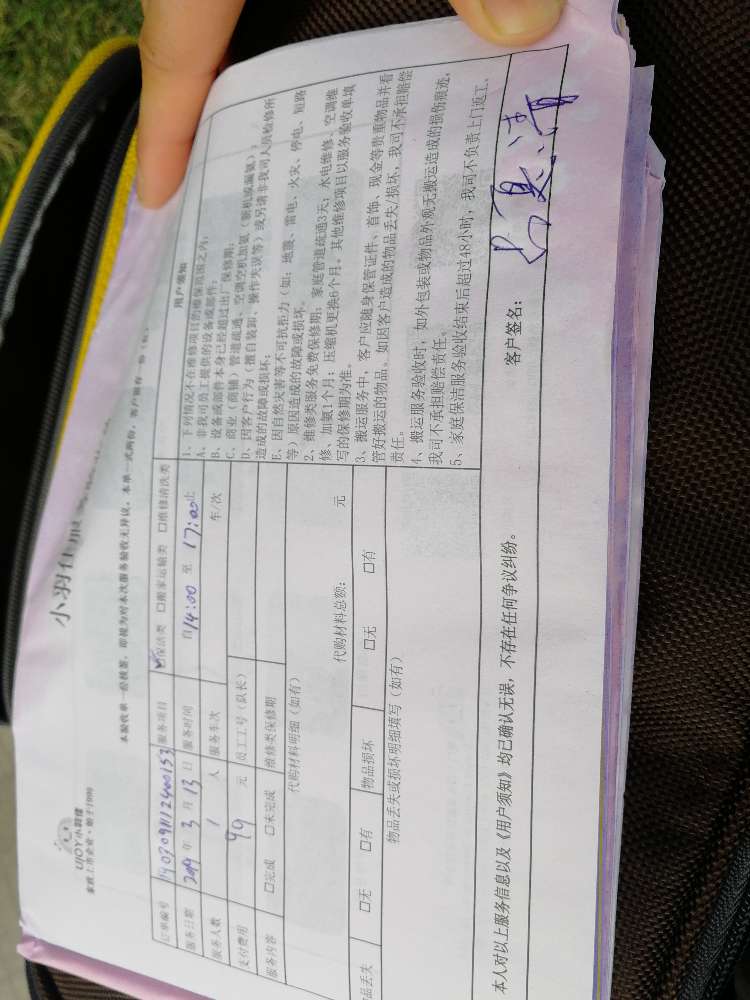 UJOY小羽佳
家政上市企业·始于1999
小羽佳服
本验收单一经核签，即视为对本次服务验收无异议，本单一式两份，客户留存一份
订单编号 服务项目 ☑保洁类 □搬家运输类 □维修清洗类
服务日期 2019年 3月 13日 服务时间 自14:00 至 17:00止
服务人数 1 人 服务车次 车/次
支付费用 99 元 员工工号（队长）
服务内容 □完成 □未完成 维修类保修期
代购材料明细（如有）
代购材料总额： 元
品丢失 □无 □有 物品损坏 □无 □有
物品丢失或损坏明细填写（如有）
用户须知
1、下列情况不在维修项目的维保范围之内：
A、非我司员工提供的设备或部件；
B、设备或部件本身已经超过出厂保修期；
C、商业（商铺）管道疏通、空调空机加氨（新机或漏氨）；
D、因客户行为（擅自装卸、操作失误等）或另请非我司人员检修所
造成的故障或损坏；
E、因自然灾害等不可抗拒力（如：地震、雷电、火灾、停电、短路
等）原因造成的故障或损坏。
2、维修类服务免费保修期：家庭管道疏通3天；水电维修、空调维
修、加氨1个月；压缩机更换6个月。其他维修项目以服务验收单填
写的保修期为准。
3、搬运服务中，客户应随身保管证件、首饰、现金等贵重物品并看
管好搬运的物品，如因客户造成的物品丢失/损坏，我司不承担赔偿
责任。
4、搬运服务验收时，如外包装或物品外观无搬运造成的损伤痕迹，
我司不承担赔偿责任。
5、家庭保洁服务验收结束后超过48小时，我司不负责上门返工、
本人对以上服务信息以及《用户须知》均已确认无误，不存在任何争议纠纷。
客户签名：